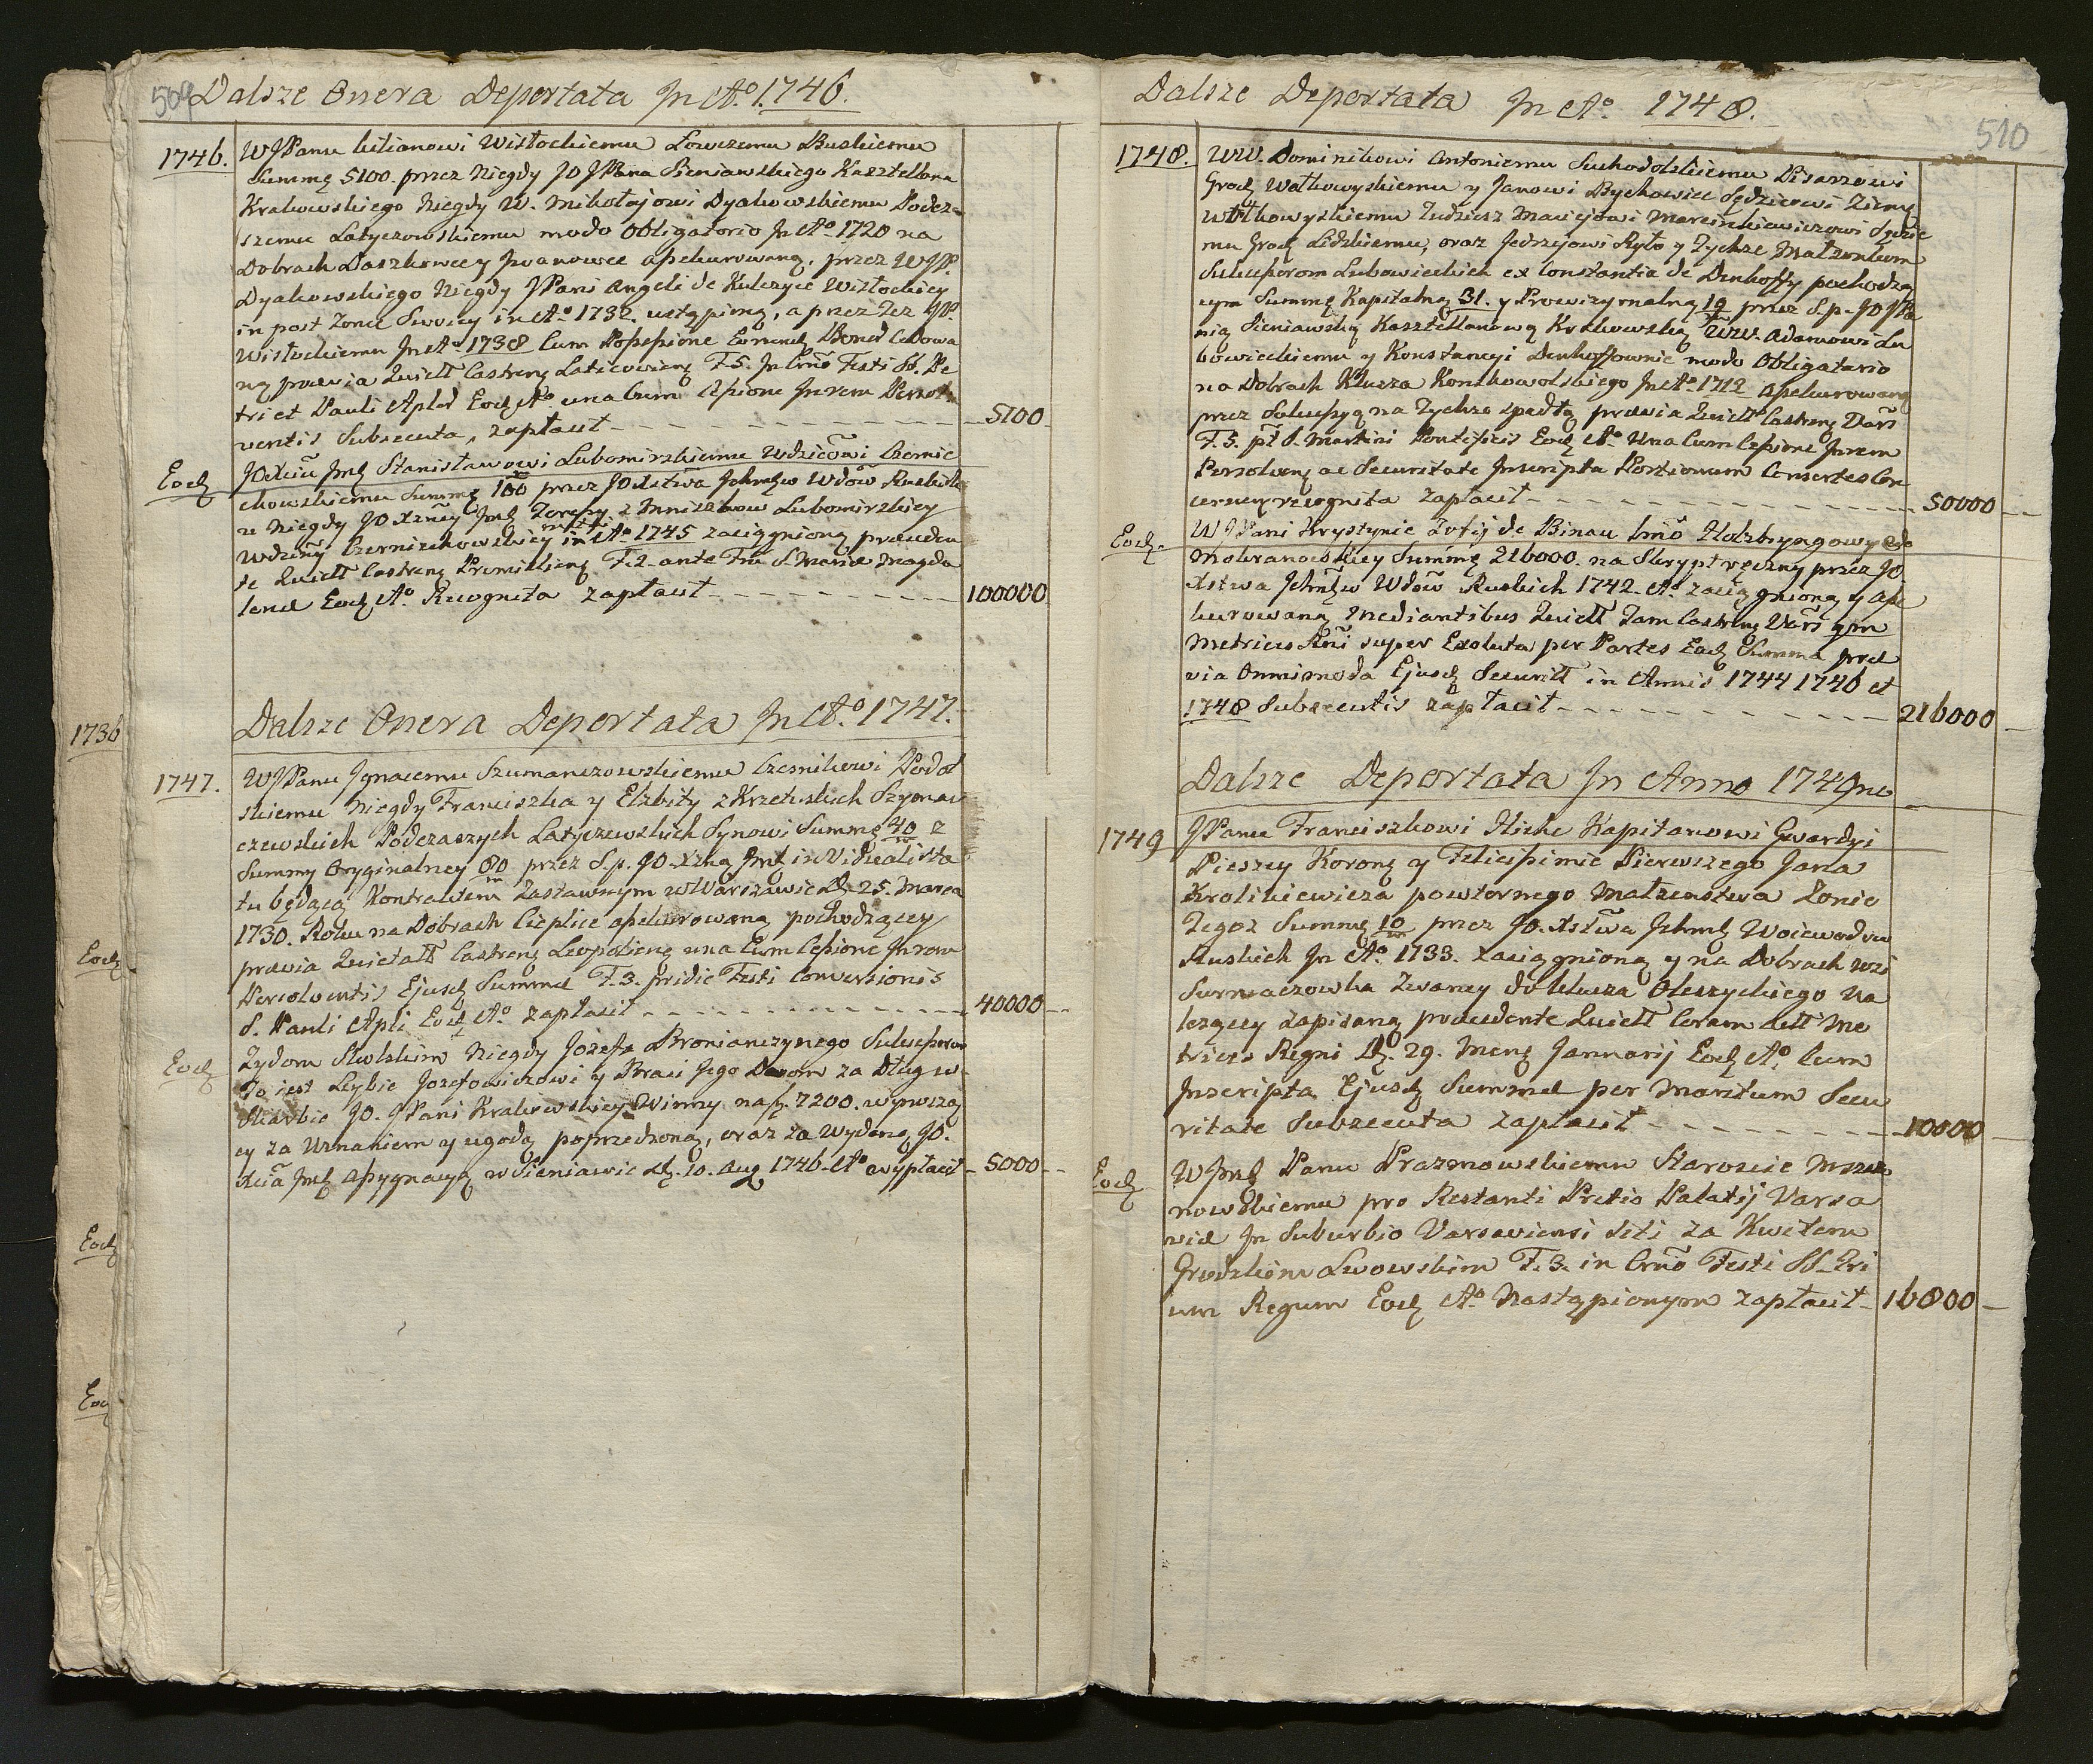 509
Dalsze Onera Deportata Jn Ao. 1746.
1746. WJPanu Wisłockiemu Łowczemu Buskiemu
Summę 5100. przez Niegdy JO JPana Sieniawskiego Kasztellana
Krakowskiego Niegdy W. Mikołajowi Dyakowskiemu Podcza-
szemu Latyczowskiemu modo Obligatorio Jn Ao 1720 na
Dobrach Daszkowce y Jwanowce assekurowaną, przez WJP.
Dyakowskiego Niegdy JPani Angeli de Kulczyce Wisłockiey
in post Zonie Swoiey in Ao. 1732. ustąpioną, a przez Tez JP.
Wisłockiemu Jn Ao. 1738 Cum Possessione Bonor Cedowa
ną praevia Quiett Castren Laticovien F. 5. Jn Crno Festi SS. Pe
tri et Pauli Aplor Eod Ao una cum Cessione Jn rem Persol
ventis Subsecuta, zapłacił 5100
Eod JO Xciu Jmć Stanisławowi Lubomirskiemu Wdzicowi Czernie
chowskiemu Summę 100/m przez JO Xstwa Jchmćw Wdow Ruskich
u Niegdy JO Xzney Jmć Teresy z Mniszkow Lubomirskiey
Wdziny Czerniechowskiey in Ao 1745 zaciągnioną praeceden
te Quiett Castren Premislien F. 2. ante Fm S. Mariae Magda
lenae Eod Ao. Recognita zapłacił 100000
Dalsze Onera Deportata Jn Ao. 1747.
1747. WJPanu Jgnacemu Szumanczowskiemu Czesnikowi Podol
skiemu Niegdy Franciszka y Elzbity z Krzetuskich Szyman
czewskich Podczaszych Latyczewskich Synowi Summę 40/m z
Summy Oryginalney 80/m przez S.p. JO Xzną Jmć in Vidualista
tu będącą Kontraktem Zastawnym w Warszawie D. 25. Marca
1730. Roku na Dobrach Cieplice assekurowaną pochodzącey
praevia Quietatt Castren Leopolien una Cum Cessione Jn rem
Persolventis Ejusd Summae F. 3. pridie Festi Conversionis
S. Pauli Apli Eod Ao. zapłacił 40000
Eod Zydom Stulskim Niegdy Jozefa Bronianczynego Sukcessorom
To iest Leybie Jozefowiczowi y Braci Jego za Dług w
Skarbie JO. JPani Krakowskiey Winny na f. 7200. wynoszą
cy za Uznaniem y ugodą poprzedzoną, oraz za Wydaną JO.
Xcia Jmć Assygnacyą w Sieniawie D. 10. Aug 1746. Ao wypłacił 5000
1736
Eod
Eod
Eod
510
Dalsze Deportata Jn Ao. 1748.
1748. WW. Dominikowi Antoniemu Suchodolskiemu Pisarzowi
Grod Wołkowyskiemu y Janowi Bychowiec Sędziemu Ziem
Wołkowyskiemu Tudziesz Maciejowi Marcinkiewiczowi Sędzie
mu Grod Lidzkiemu, oraz Jedrzejowi Ryło y Tychze Małzonkom
Sukcessorom Lubowieckich ex Constantia de Denhoffy pochodzą
cym Summę Kapitalną 31. y Prowizyonalną 19/m przez S.p. JO JPa
nią Sieniawską Kasztellanową Krakowską WW. Adamowi Lu
bowieckiemu y Konstancyi Denhoffownie modo Obligatorio
na Dobrach Klucza Konskowolskiego Jn Ao. 1712 assekurowaną
przez Sukcessyą na Tychze spadłą praevia Quiett Castren Vars
F. 5. pt S. Martini Pontificis Eod Ao. Una Cum Cessione Jn rem
Persolven ac Securitate Jnscripta Portionum Consortes Con
cernen recognita zapłacił 50000
Eod. WJPani Krystynie Zofij de Binau Holzbryngowy
Mokranowskiey Summę 216000. na Skrypt ręczny przez JO
Xstwa Jchmćw Wdow Ruskich 1742. Ao. zaciągnioną y asse
kurowaną mediantibus Quiett Tam Castren Vars qm
Metrices Rni super Exoluta per Partes Ead Summa prae
via Omnimoda Ejusd Securitt in Annis 1744 1746 et
1748 Subsecutis zapłacił 216000
Dalsze Deportata Jn Anno 1749no
1749 JPanu Franciszkowi Hicke Kapitanowi Gwardyi
Pieszey Koronn y Felicissimie Pierwszego Jana
Krolikiewicza powtornego Małzenstwa Zonie
Tegoz Summę 10/m przez JO. Xstwa Jchmć Woiewodow
Ruskich Jn Ao. 1733. zaciągnioną y na Dobrach wsi
Surmaczowka Zwaney do Klucza Oleszyckiego na
lezącey zapisaną praecedente Quiett Coram Actt Me
trices Regni D. 29. Mens Januarij Eod Ao. Cum
Jnscripta Ejusd Summae per Maritum Secu
ritate Subsecuta zapłacił 10000
Eod WJmć Panu Prazmowskiemu Staroscie Mszcz
nowskiemu pro Restanti Pretio Palatij Varsa
viae Jn Suburbio Varsaviensi siti za Kwitem
Grodzkim Lwowskim F. 3. in Crno Festi SS. Tri
um Regum Eod Ao. Nastąpionym zapłacił 16800